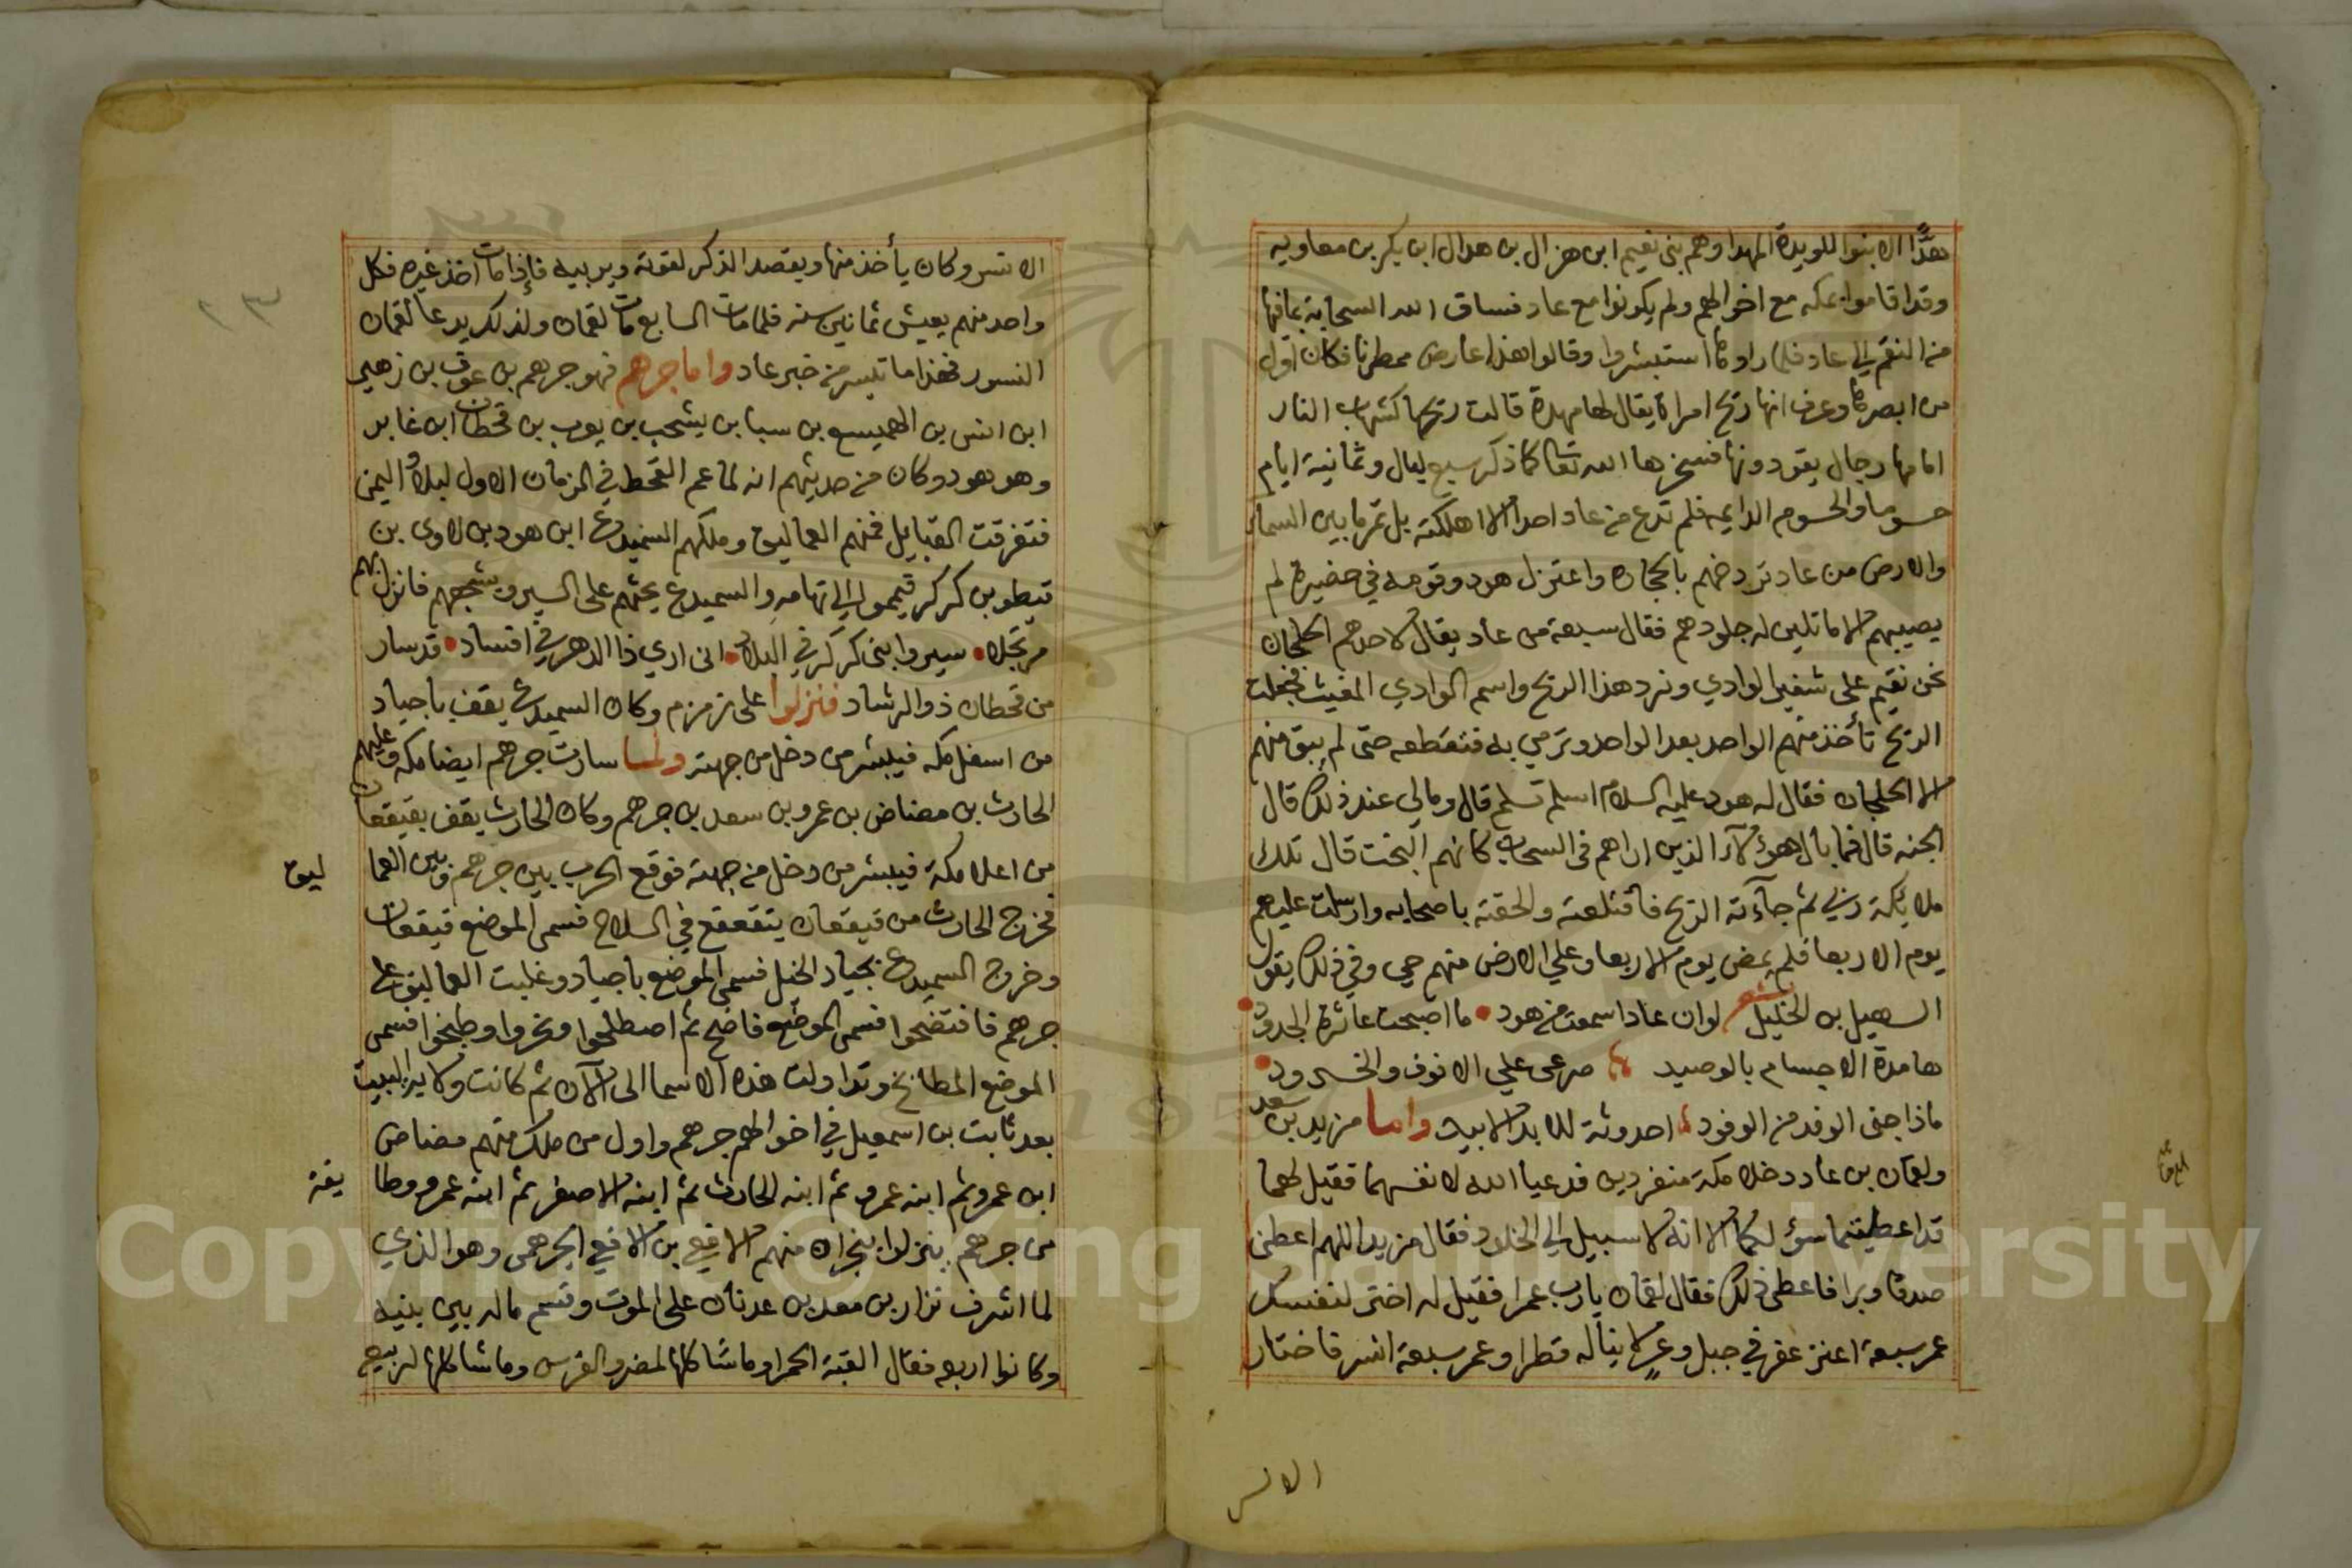 هدًّا الا بنوا للويدة المهدا وهم بنى نعيم ابن هزال بن هدال ابن بكر بن معاويه
وقد اقاموا بمكه مع اخوالهم ولم يكونوا مع عاد فساق الله السحابة بما فيها
من النقم الي عاد فلما راوها استبشروا وقالوا هذا عارض ممطرنا فكان اول
من ابصرها وعرف انها ريح امراة يقال لها مهدة قالت ريحها كشهاب النار
امامها رجال يقودونها فسخرها الله تعالى كما ذكر سبع ليال وثمانية ايام
حسوما والحسوم الدايمه فلم تدع من عاد احدا الا اهلكته بل تمر ما بين السماء
والارض من عاد ترضخهم بالحجاره واعتزل هود وقومه في حضيرة لم
يصيبهم الا ما تلين له جلودهم فقال سبعة من عاد يقال لاحدهم الخلجان
نحن نقيم على شفير الوادي ونرد هذا الريح واسم الوادي المغيث فجعلت
الريح تأخذ منهم الواحد بعد الواحد وترمي به فتقطعه حتى لم يبق منهم
الا الخلجان فقال له هود عليه السلام اسلم تسلم قال ومالي عند ذلك قال
الجنه قال فما بال هؤلآء الذين اراهم فى السحاب كانهم البخت قال تلك
ملايكة ربي ثم جآءته الريح فاقتلعته والحقته باصحابه وارسلت عليهم
يوم الاربعا فلم يمض يوم الاربعا وعلي الارض منهم حي وفي ذلك يقول
السهيل بن الخليل شعر لو ان عادا سمعت من هود • ما اصبحت عاثرة الجدود •
هامدة الاجسام بالوصيد صرعى علي الانوف والخدود •
ماذا جنى الوفد من الوفود احدوثة للابد الابيد واما مزيد بن سعد
ولقمان بن عاد دخلا مكة منفردين فدعيا الله لانفسهما فقيل لهما
قد اعطيتما سؤلكما الا انه لا سبيل الي الخلود فقال مزيد اللهم اعطنى
صدقا وبرا فاعطى ذلك فقال لقمان يا رب عمرا فقيل له اختر لنفسك
عمر سبعة اعنز عفر في جبل وعر لا يناله قطرا وعمر سبعة انسر فاختار
الانسر
الانسر وكان يأخذ منها ويقصد الذكر لقوته ويربيه فإذا مات اخذ غيره فكل
واحد منهم يعيش ثمانين سنه فلما مات السابع مات لقمان ولذلك يدعا لقمان
النسور فهذا ما تيسر من خبر عاد واما جرهم فهو جرهم بن عوف بن زهير
ابن انس بن الهميسع بن سبا بن يشجب بن يعرب بن قحطان ابن غابر
وهو هود وكان من حديثهم انه لما عم القحط في الزمان الاول لبلاد اليمن
فتفرقت القبايل فمنهم العماليق وملكهم السميدع ابن هود بن لاوى بن
قيطو بن كركر قيمموا الي تهامه والسميدع يحثهم على السير ويشجعهم فانزل بهم
مرتجلا • سيروا بنى كركر في البلاد • انى ارى ذا الدهر في افساد • قد سار
من قحطان ذو الرشاد فنزلوا على زمزم وكان السميدع يقف باجياد
من اسفل مكه فيلبشر من دخل من جهته ولما سارت جرهم ايضا مكه وعليهم
الحارث بن مضاض بن عمرو بن سعد بن جرهم وكان الحارث يقف بقيقعان
من اعلا مكة فيلبشر من دخل من جهة فوقع الحرب بين جرهم وبين العما ليق
فخرج الحارث من قيقعان يتقعقع في السلاح فسمى الموضع قيقعان
وخرج السميدع بجياد الخيل فسمى الموضع باجياد وغلبت العماليق على
جرهم فافتضحوا فسمى الموضع فاضح ثم اصطلحوا ونحروا وطبخوا فسمى
الموضع المطابخ وتداولت هذه الاسما الى الآن ثم كانت ولاية البيت
بعد ثابت بن اسمعيل في اخوالهم جرهم واول من ملك منهم مضاض
ابن عمرو ثم ابنه عمرو ثم ابنه الحارث ثم ابنه الاصغر ثم ابنه عمرو وطا يفة
من جرهم ينزلوا بنجران منهم الافيع بن الافيع الجرهمى وهو الذي
لما اشرف نزار بن معد بن عدنان على الموت وقسم ماله بين بنيه
وكانوا اربعه فقال القبة الحمرا وما شاكلها لمضر والفرس وما شاكلها لربيعه
Copyright © King Saud University
1957